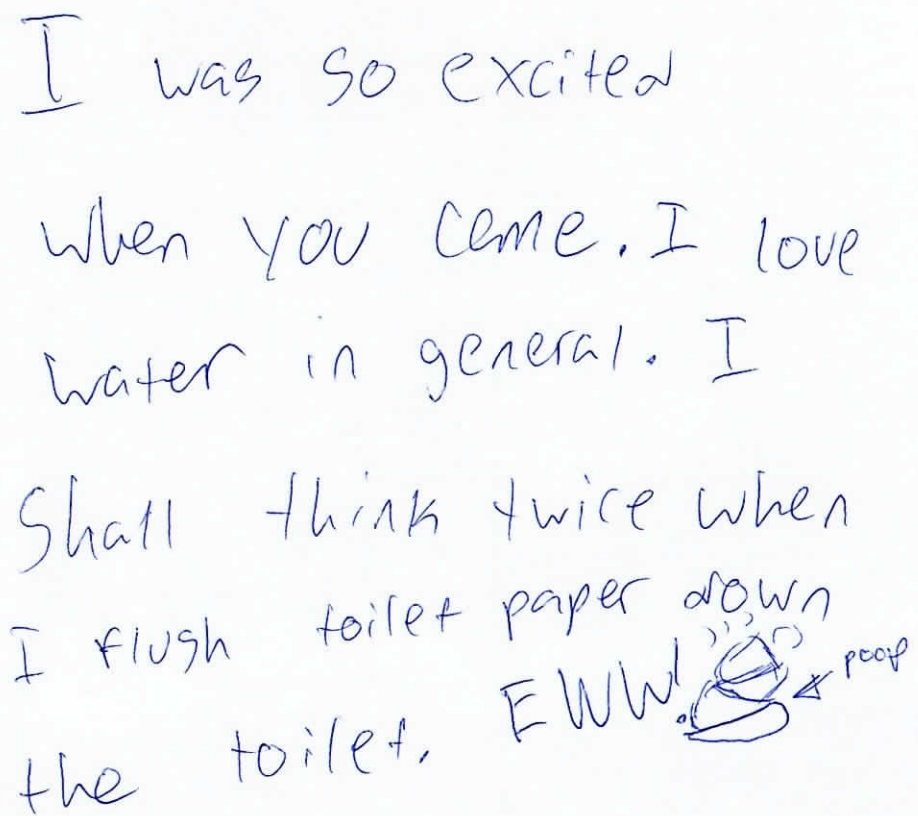 I was so excited
when you came. I love
water in general. I
Shall think twice when
I flush toilet paper down
the toilet. EWW!
poop